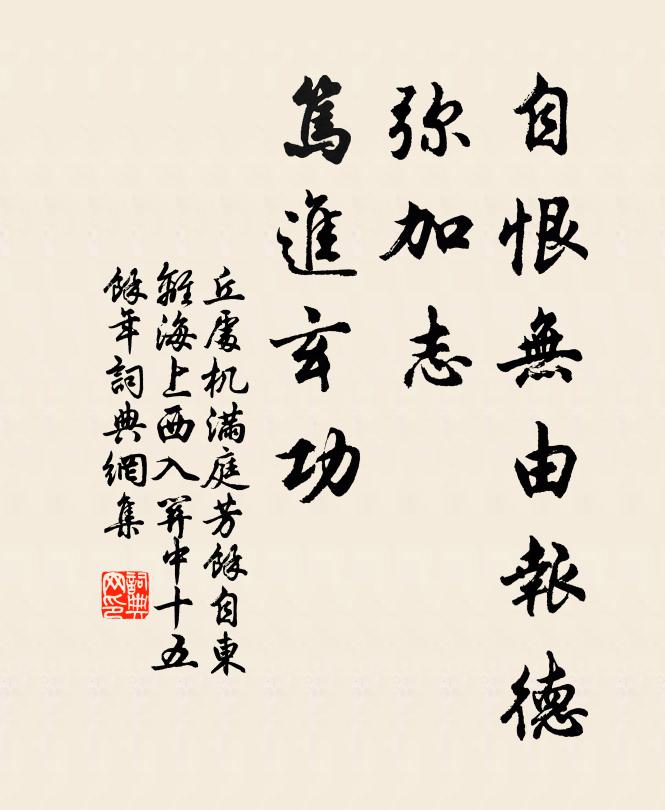 自恨無由報德
弥加志
篤進玄功
丘處机滿庭芳餘自東
離海上西入關中十五
餘年詞典網集
詞典网印